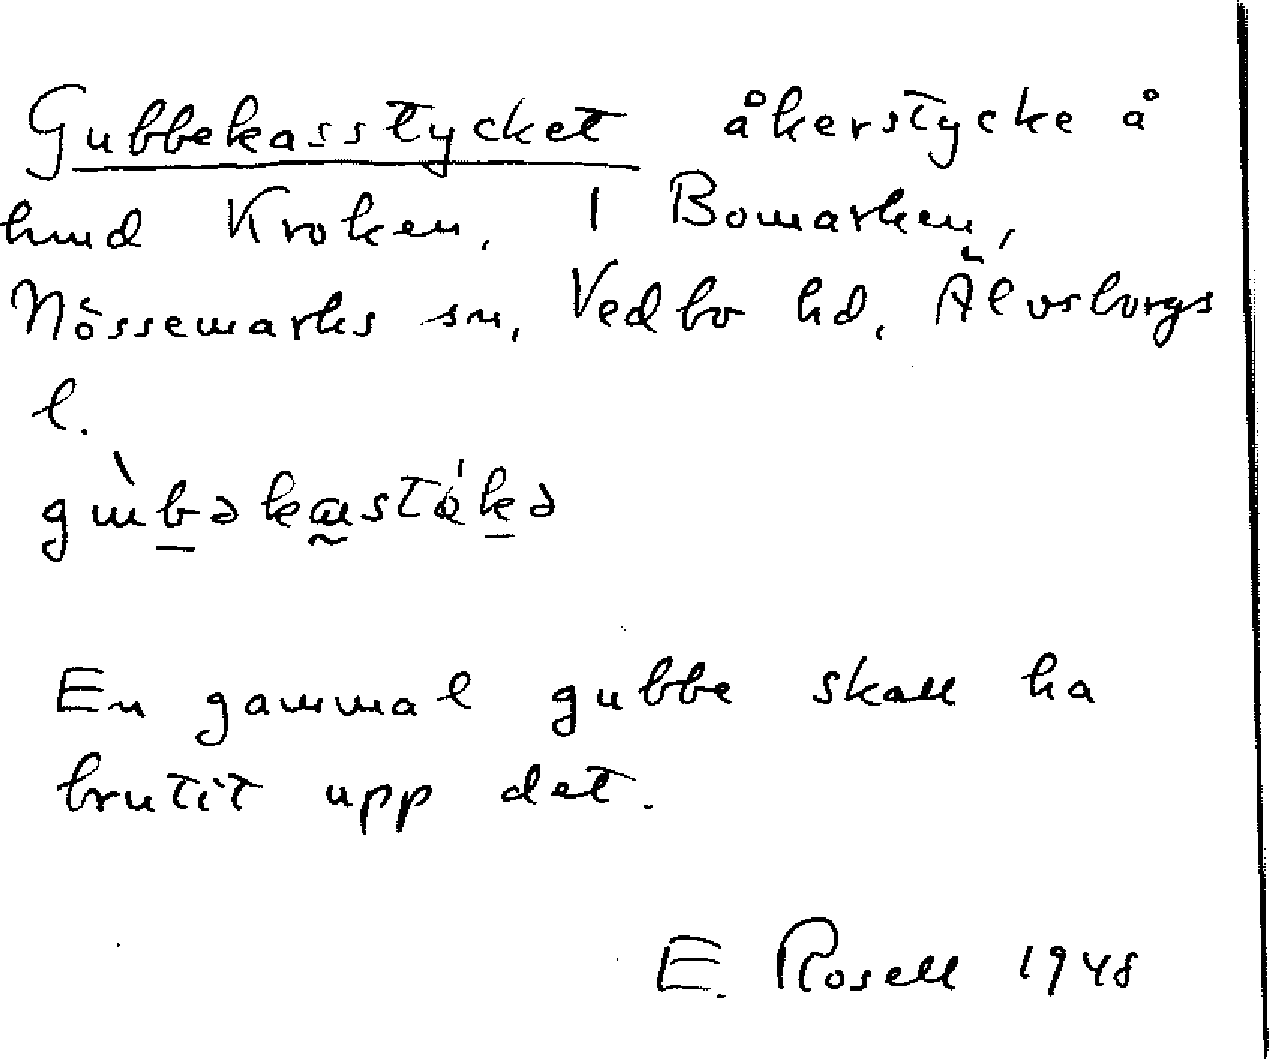 Gubbekasstycket åkerstycke å
hmd Kroken, 1 Bomarken,
Nössemarks sn, Vedbo hd, Älvsborgs
l.
En gammal gubbe skall ha
brutit upp det.
E. Rosell 1948